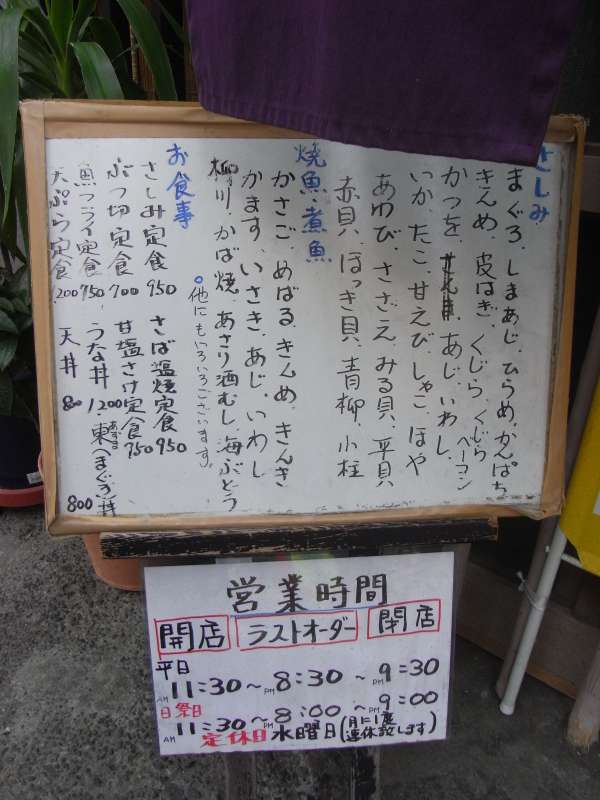 さしみ
まぐろ、しまあじ、ひらめ、かんぱち
きんめ、皮はぎ、くじら、くじらベーコン
かつを、あじ、いわし、
いか、たこ、甘えび、しゃこ、ほや
あわび、さざえ、みる貝、平貝
赤貝、ほっき貝、青柳、小柱
焼魚・煮魚
かさご、めばる、きんめ、きんき
かます、いさき、あじ、いわし
柳川、かば焼、あさり酒むし、海ぶどう
○他にもいろいろございます。
お食事
さしみ定食 950 さば塩焼定食 950
ぶつ切定食 900 甘塩さけ定食 750
魚フライ定食 950、うな丼 1200 東(まぐろ)丼 800
あずま
天ぷら定食 1200 天丼 800
営業時間
開店 ラストオーダー 閉店
平日
AM 11:30～PM 8:30 ～PM 9:30
日祭日
AM 11:30～PM 8:00 ～PM 9:00
定休日 水曜日(月に1度連休致します)